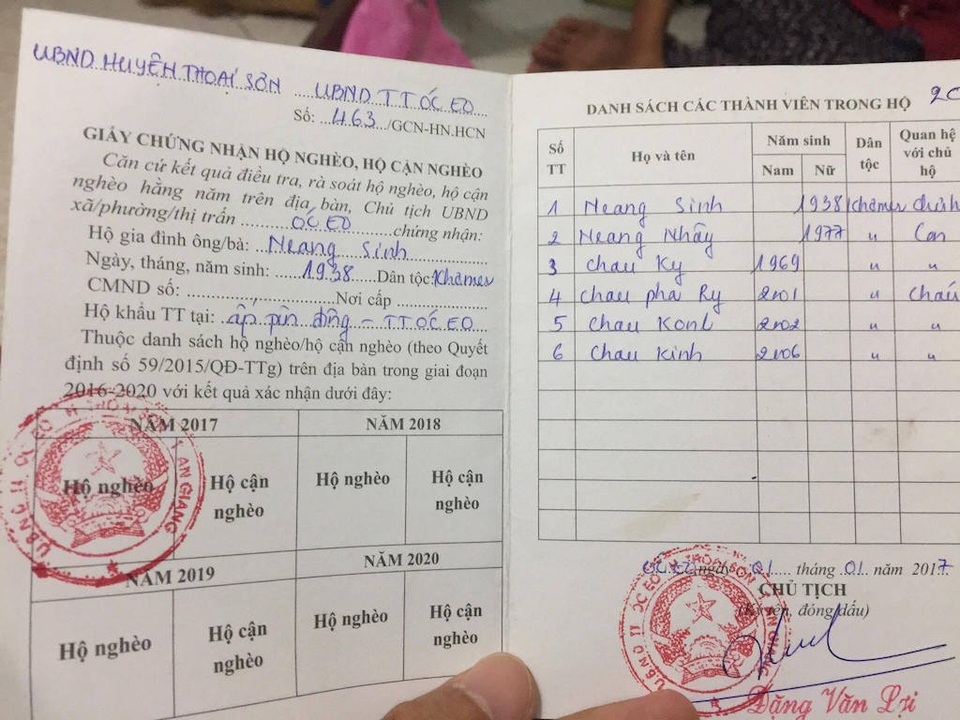 UBND HUYỆN THOẠI SƠN UBND TT ÓC EO
Số: 463 /GCN-HN.HCN
GIẤY CHỨNG NHẬN HỘ NGHÈO, HỘ CẬN NGHÈO
Căn cứ kết quả điều tra, rà soát hộ nghèo, hộ cận
nghèo hằng năm trên địa bàn, Chủ tịch UBND
xã/phường/thị trấn ÓC EO chứng nhận:
Hộ gia đình ông/bà: Neang Sinh
Ngày, tháng, năm sinh: 1938 Dân tộc: Khamer
CMND số: Nơi cấp
Hộ khẩu TT tại: ấp đông - TT ÓC EO
Thuộc danh sách hộ nghèo/hộ cận nghèo (theo Quyết
định số 59/2015/QĐ-TTg) trên địa bàn trong giai đoạn
2016-2020 với kết quả xác nhận dưới đây:
NĂM 2017 NĂM 2018
Hộ nghèo Hộ cận nghèo Hộ nghèo Hộ cận nghèo
NĂM 2019 NĂM 2020
Hộ nghèo Hộ cận nghèo Hộ nghèo Hộ cận nghèo
DANH SÁCH CÁC THÀNH VIÊN TRONG HỘ 20
Số TT Họ và tên Năm sinh Nam Nữ Dân tộc Quan hệ với chủ hộ
1 Neang Sinh 1938 Khamer
2 Neang Nhây 1977 " Con
3 Chau Ky 1969 " "
4 Chau pha Ry 2001 " Cháu
5 Chau Konl 2002 " "
6 Chau Kinh 2006 " "
ngày 01 tháng 01 năm 2017
CHỦ TỊCH
(Ký tên, đóng dấu)
Đặng Văn Lợi